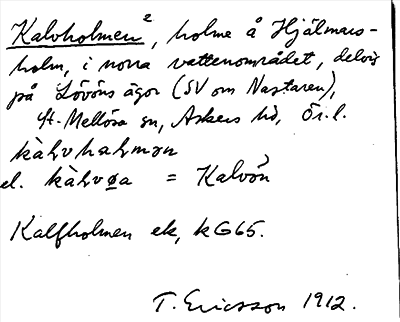 Kalvholmen 2, holme å Hjälmars-
holm, i norra vattenområdet, delvis
på Lövöns ägor (SV om Nastaren),
St. Mellösa sn, Askers hd, Ör. l.
kàlvhalmən
el. kàlvøa = Kalvön
Kalfholmen ek, kG65.
T. Ericsson 1912.